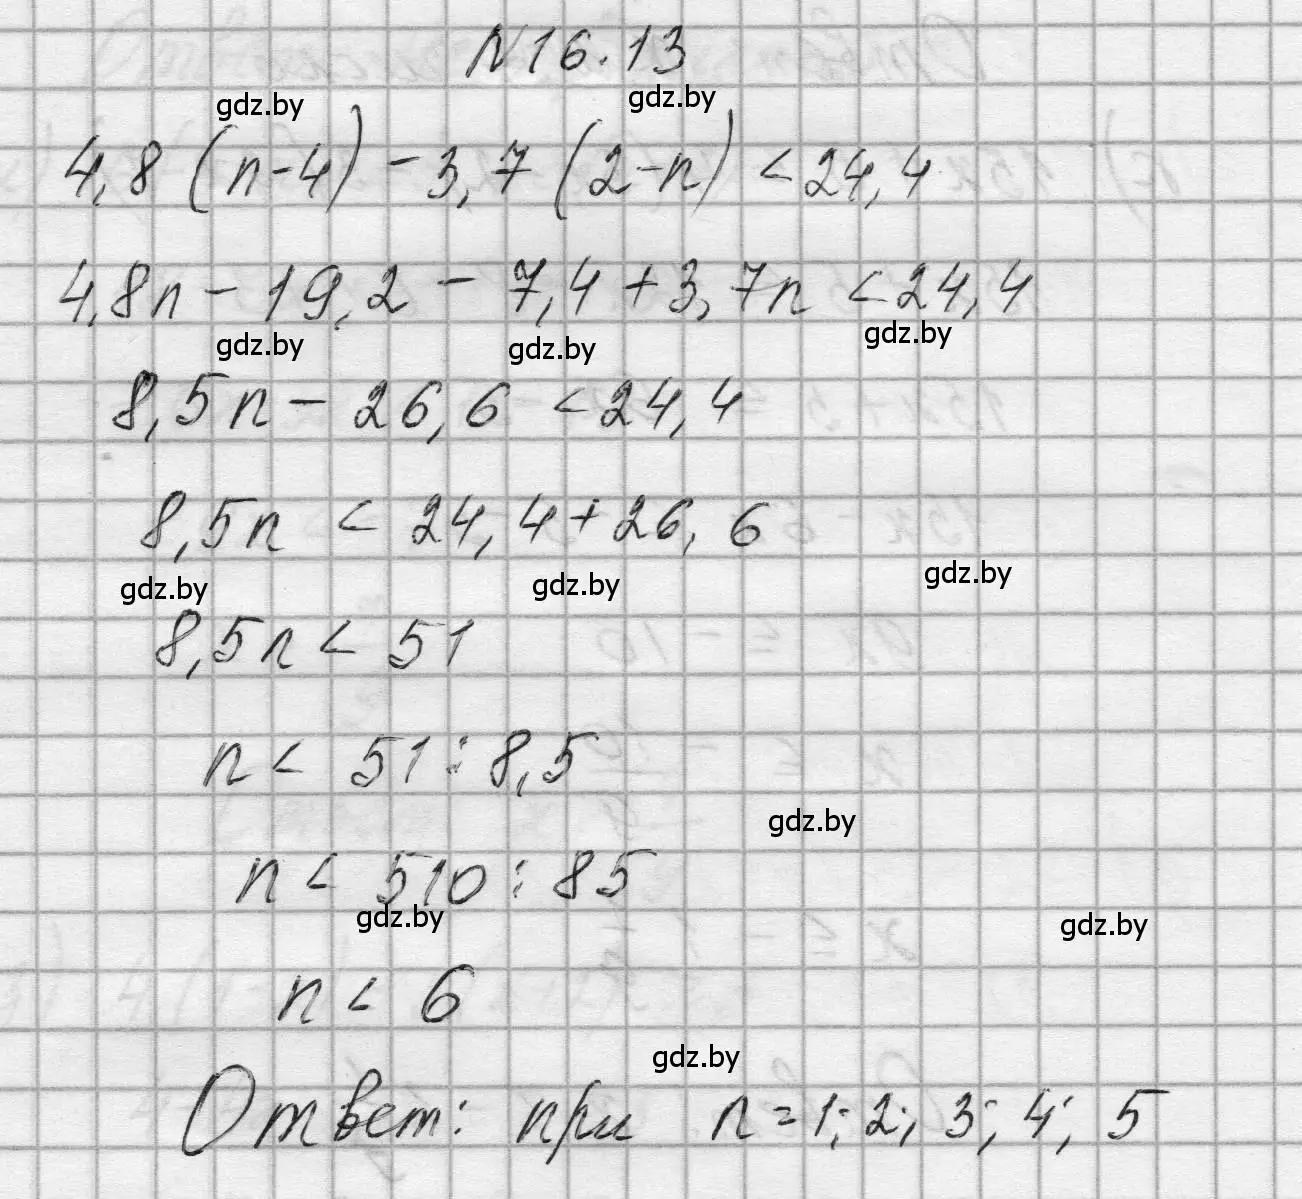 N16.13
gdz.by gdz.by
4,8 (n-4) - 3,7 (2-n) < 24,4
4,8n - 19,2 - 7,4 + 3,7n < 24,4
gdz.by gdz.by gdz.by
8,5n - 26,6 < 24,4
8,5n < 24,4 + 26,6
gdz.by gdz.by gdz.by
8,5n < 51
n < 51 : 8,5
gdz.by
n < 510 : 85
gdz.by gdz.by
n < 6
gdz.by
Ответ: при n = 1; 2; 3; 4; 5